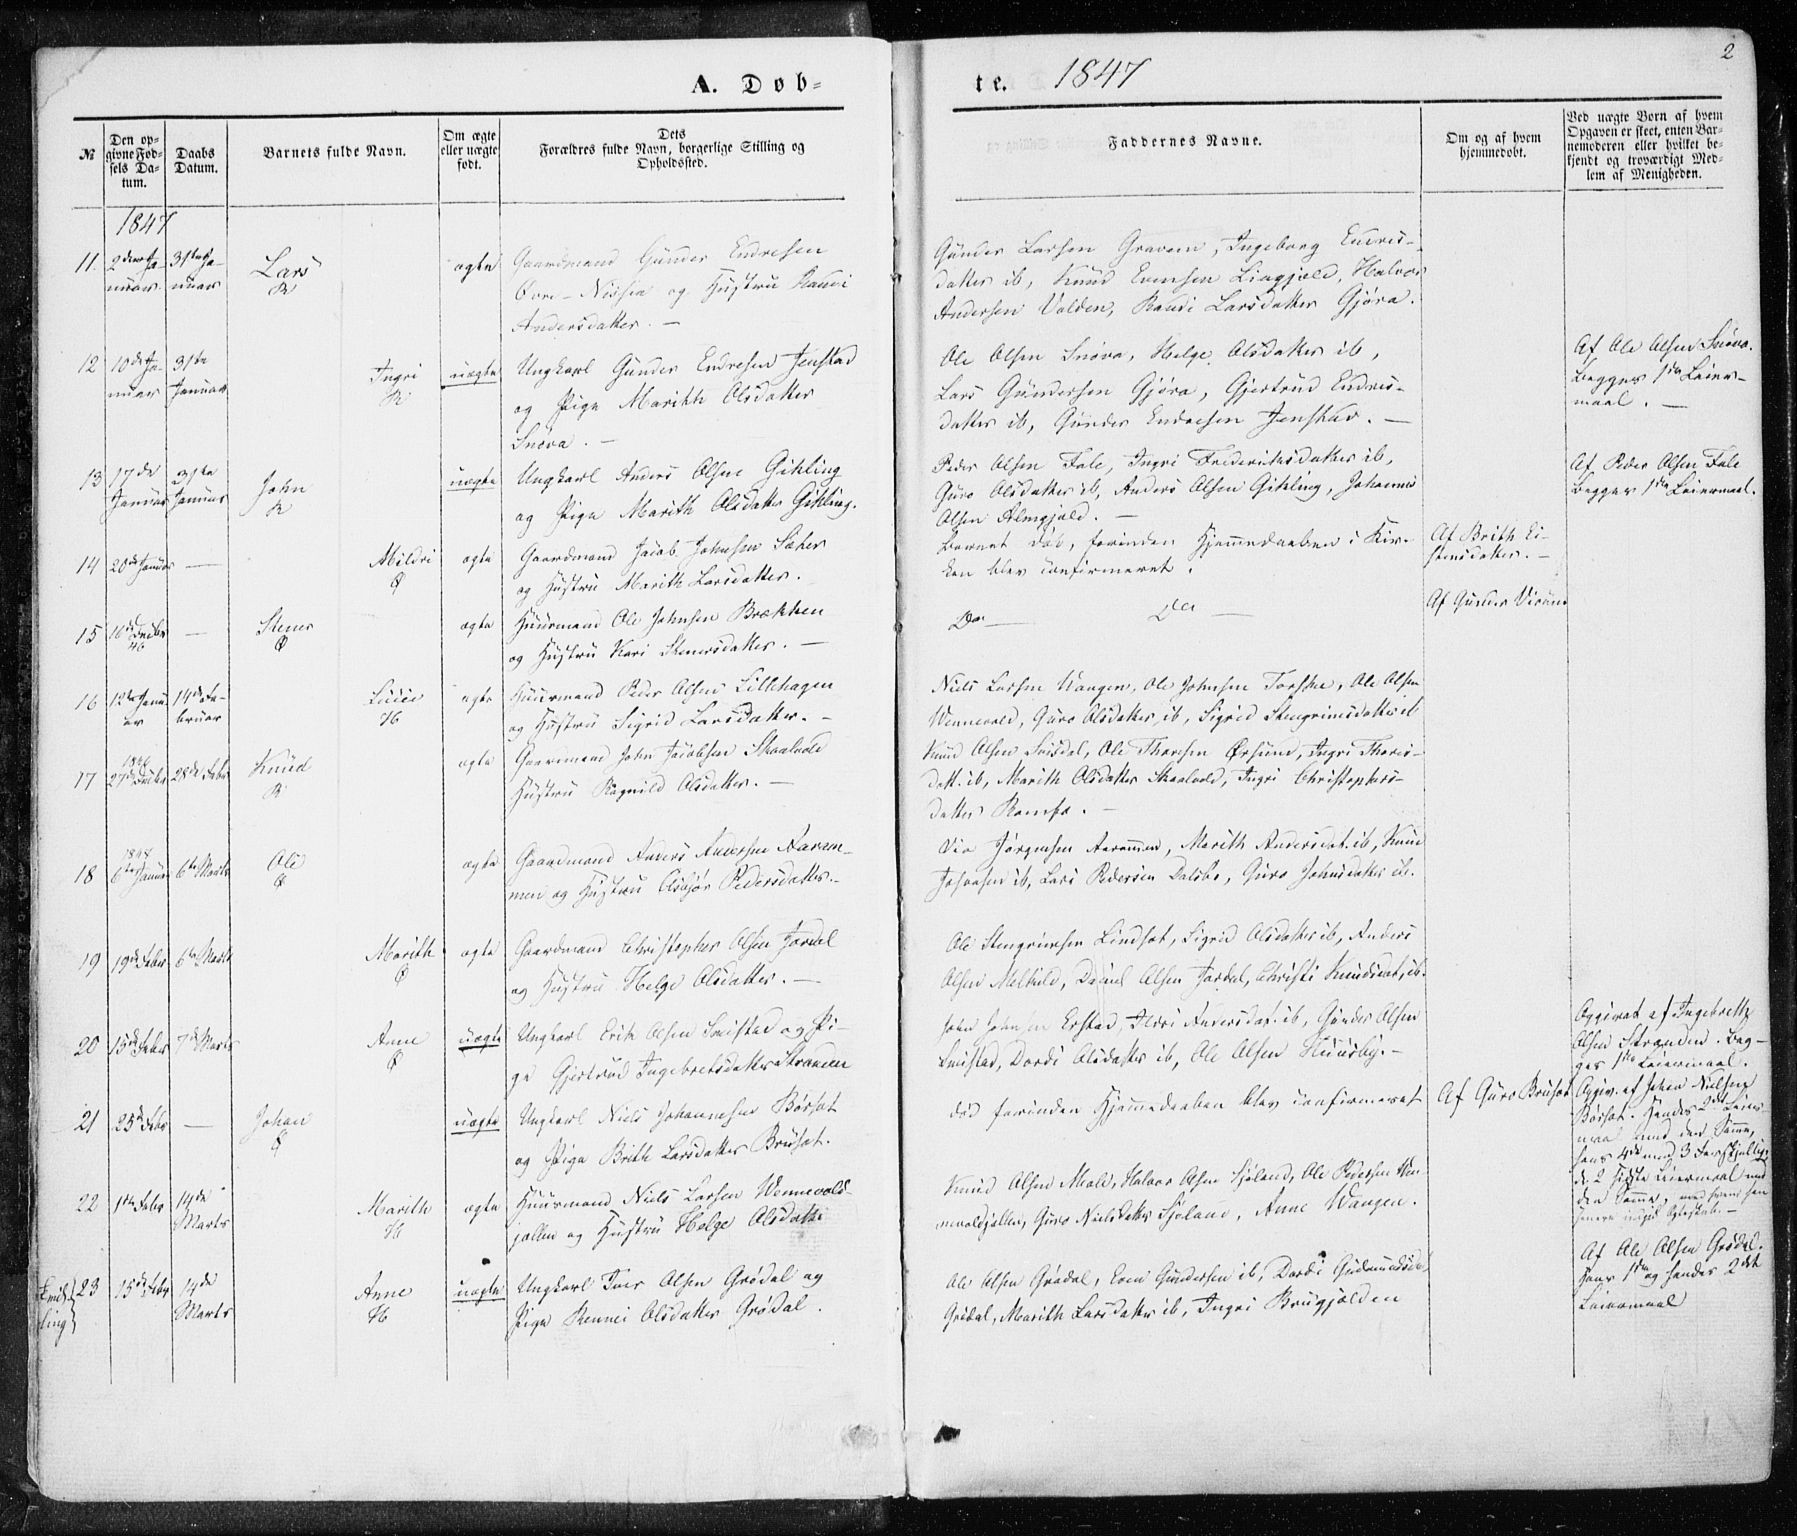 2
A. Dob-
te. 1847
№
Den op-
givne Fød-
sels Da-
tum.
Daabs
Datum.
Barnets fulde Navn.
Om ægte
eller uægte
født.
Dets
Forældres fulde Navn, borgerlige Stilling og
Opholdssted.
Faddernes Navne.
Om og af hvem
hjemmedøbt.
Ved uægte Børn af hvem
Opgaven er skeet, enten Bar-
nemoderen eller hvilket be-
kjendt og troværdigt Med-
lem af Menigheden.
1847
11. 2den Ja-
nuar
31te Ja-
nuar
Lars
R
ægte
Gaardmand Gunder Endresen
Øvre-Nissen og Hustru Randi
Andersdatter. —
Gunder Larsen Gravem, Ingeborg Endres-
datter ib, Knud Evensen Lingjæld, Halvor
Andersen Volden, Randi Larsdatter Gjøra.
12 10de Ja-
nuar
31te
Januar
Ingri
R
uægte
Ungkarl Gunder Endresen Jenstad
og Pige Marith Olsdatter
Snøva. —
Ole Olsen Snøva, Helge Olsdatter ib,
Lars Gundersen Gjøra, Gjertrud Endres-
datter ib, Gunder Endresen Jenstad. —
Af Ole Olsen Snøva.
Begges 1ste Leier-
maal. —
13 17de
Januar
31te
Januar
John
R
uægte
Ungkarl Anders Olsen Gikling
og Pige Marith Olsdatter Gikling.
Peder Olsen Fale, Ingri Frederiksdatter ib,
Guro Olsdatter ib, Anders Olsen Gikling, Johannes
Olsen Almgjæld. —
Af Peder Olsen Fale
Begges 1ste Leiermaal.
14 20de Januar —
Mildri
Ø
ægte
Gaardmand Jacob Johnsen Sæter
og Hustru Marith Larsdatter. —
Barnet døde, forinden Hjemmedaaben i Kir-
ken blev confirmeret.
Af Brith Ei-
stensdatter. —
15 10de Decbr
46
—
Stener
Ø
ægte
Huusmand Ole Johnsen Brækken
og Hustru Kari Stenersdatter. —
Do — Do —
Af Gunder
16 12te Janu-
ar
14de Fe-
bruar
H
ægte
Huusmand Peder Olsen Lillehagen
og Hustru Sigrid Larsdatter. —
Niels Larsen Wangen, Ole Johnsen Torske, Ole Olsen
Wennevold, Guro Olsdatter ib, Sigrid Stengrimsdatter ib
17 1846
27de Decbr
28de Febr
Knud
R
ægte
Gaardmand John Jacobsen Skaalvold
Hustru Ragnild Olsdatter. —
Knud Olsen Svisdal, Ole Thoresen Ørsund, Ingri Thores-
datt. ib, Marith Olsdatter Skaalvold, Ingri Christophers-
datter Romfo. —
18 1847
6te Januar
6te Marts
Ole
Ø
ægte
Gaardmand Anders Andersen Aarem-
men og Hustru Asbjør Pedersdatter. —
Jørgensen Aarammen, Marith Andersdat. ib, Knud
Johnsen ib, Lars Pedersen Dalsbø, Guro Johnsdatter ib.
19 19de Febr
6te Marts
Marith
Ø
ægte
Gaardmand Christopher Olsen Jordal
og Hustru Helge Olsdatter. —
Ole Stengrimsen Lindset, Sigrid Olsdatter ib, Anders
Olsen Melkild, Daniel Olsen Jordal, Christi Knudsdat. ib.
20 15de Febr
7de Marts
Anne
Ø
uægte
Ungkarl Erik Olsen Smistad og Pi-
ge Gjertrud Ingebretsdatter Stranden
John Johnsen Erstad, Andersdat. ib, Gunder Olsen
Smistad, Dordi Olsdatter ib, Ole Olsen Huusby. —
Opgivet af Ingebrett
Olsen Stranden. Beg-
ges 1ste Leiermaal.
21 25de Febr —
Johan
Ø
uægte
Ungkarl Niels Johannesen Børset
og Pige Brith Larsdatter Bruset.
død forinden Hjemmedaaben blev confirmeret
Af Guro Bruset
Opgiv. af Johan Nielsen
Børset. Hendes 2det Leier-
maal med den Samme,
hans 4de med 3 Forskjellige
de 2 sidste Leiermaal med
den Samme, med hvem han
senere indgik Ægteskab. —
22 1ste Febr
14de
Marts
Marith
H
ægte
Huusmand Niels Larsen Wennevolds-
jællen og Hustru Helge Olsdatter
Knud Olsen Mæle, Halvor Olsen Sjøland, Ole Pedersen Wen-
nevoldjællen, Guro Nielsdatter Sjøland, Anne Wangen.
23 15de Febr
14de
Marts
Anne
H
uægte
Ungkarl Iver Olsen Grødal og
Pige Rennei Olsdatter Grødal.
Ole Olsen Grødal, Even Gundersen ib, Dordi Gudmundsdat
Grødal, Marith Larsdatter ib, Ingri Brugjælden
Af Ole Olsen Grødal.
Hans 1ste og hendes 2det
Leiermaal